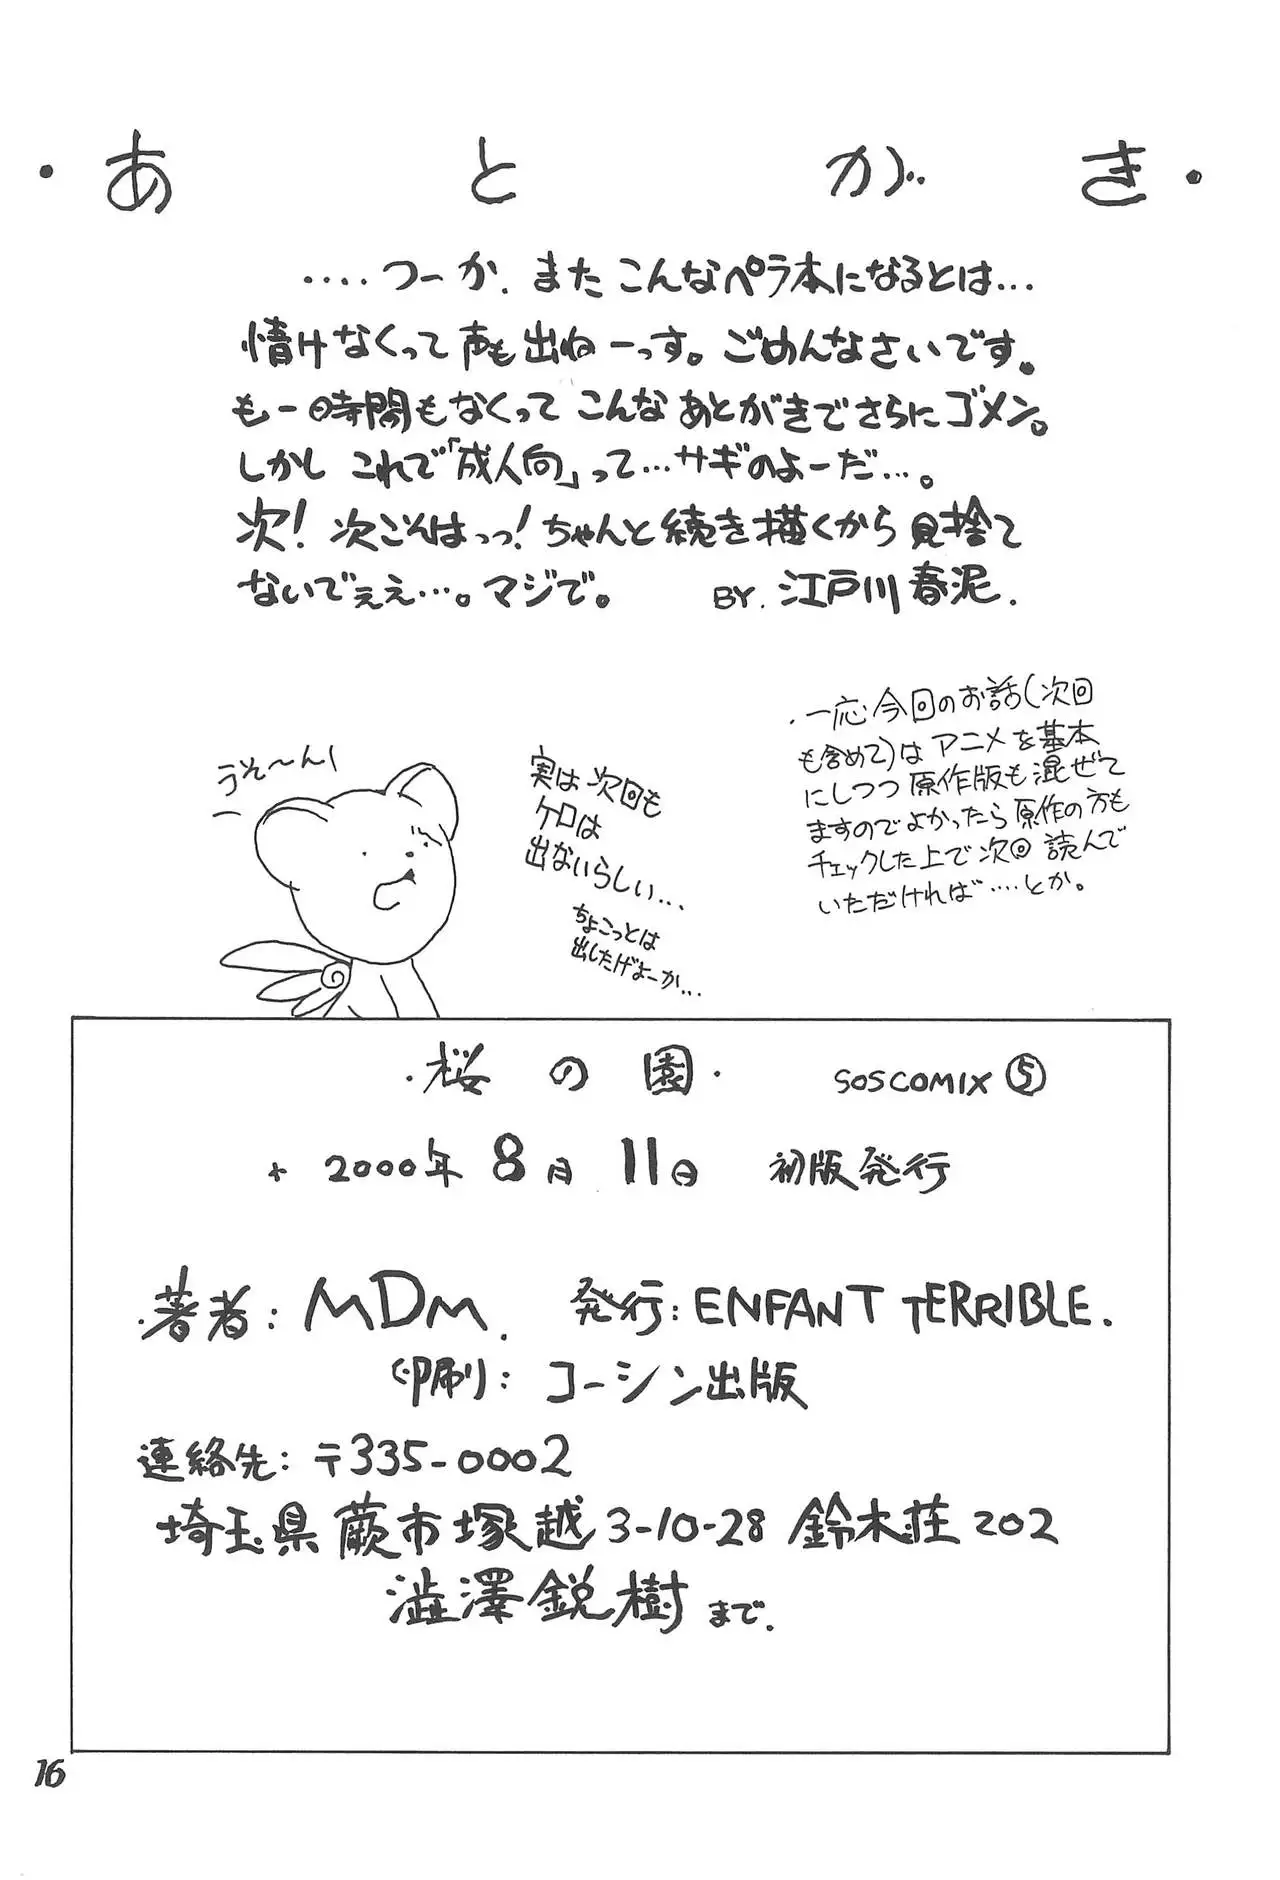 ・あとがき・
‥‥つーか、またこんなペラ本になるとは…
情けなくって声も出ねーっす。ごめんなさいです。
も一時間もなくってこんなあとがきでさらにゴメン。
しかしこれで「成人向」って…サギのよーだ…。
次！次こそはっっ！ちゃんと続き描くから見捨て
ないでぇぇ…。マジで。 BY.江戸川春泥.
・一応今回のお話(次回
も含めて)はアニメを基本
にしつつ原作版も混ぜて
ますのでよかったら原作の方も
チェックした上で次回読んで
いただければ‥‥とか。
うそ〜ん
実は次回も
ケロは
出ないらしい…
ちょこっとは
出したげよーか…
・桜の園・ SOSCOMIX⑤
+ 2000年8月11日 初版発行
・著者:MDM. 発行:ENFANT TERRIBLE.
印刷:コーシン出版
連絡先:〒335-0002
埼玉県蕨市塚越3-10-28 鈴木荘202
澁澤鋭樹まで.
16